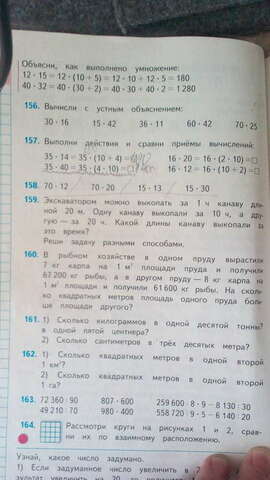 Объясни, как выполнено умножение:
12 · 15 = 12 · (10 + 5) = 12 · 10 + 12 · 5 = 180
40 · 32 = 40 · (30 + 2) = 40 · 30 + 40 · 2 = 1 280
156. Вычисли с устным объяснением:
30 · 16 15 · 42 36 · 11 60 · 42 70 · 25
157. Выполни действия и сравни приёмы вычислений:
35 · 14 = 35 · (10 + 4) = 16 · 20 = 16 · (2 · 10) = □
35 · 40 = 35 · (4 · 10) = □ 16 · 12 = 16 · (10 + 2) = □
158. 70 · 12 70 · 20 15 · 13 15 · 30
159. Экскаватором можно выкопать за 1 ч канаву дли-
ной 20 м. Одну канаву выкопали за 10 ч, а дру-
гую — за 20 ч. Какой длины канаву выкопали за
это время?
Реши задачу разными способами.
160. В рыбном хозяйстве в одном пруду вырастили
7 кг карпа на 1 м² площади пруда и получили
67 200 кг рыбы, а в другом пруду — 8 кг карпа на
1 м² площади и получили 61 600 кг рыбы. На сколь-
ко квадратных метров площадь одного пруда боль-
ше площади другого?
161. 1) Сколько килограммов в одной десятой тонны?
в одной пятой центнера?
2) Сколько сантиметров в трёх десятых метра?
162. 1) Сколько квадратных метров в одной второй
1 км²?
2) Сколько квадратных метров в одной второй
1 га?
163. 72 360 : 90 807 · 600 259 600 : 8 · 9 − 8 130 : 30
49 210 : 70 980 · 400 558 720 : 9 · 5 − 6 140 : 20
164. Рассмотри круги на рисунках 1 и 2, срав-
ни их по взаимному расположению.
Узнай, какое число задумано.
1) Если задуманное число увеличить в 2